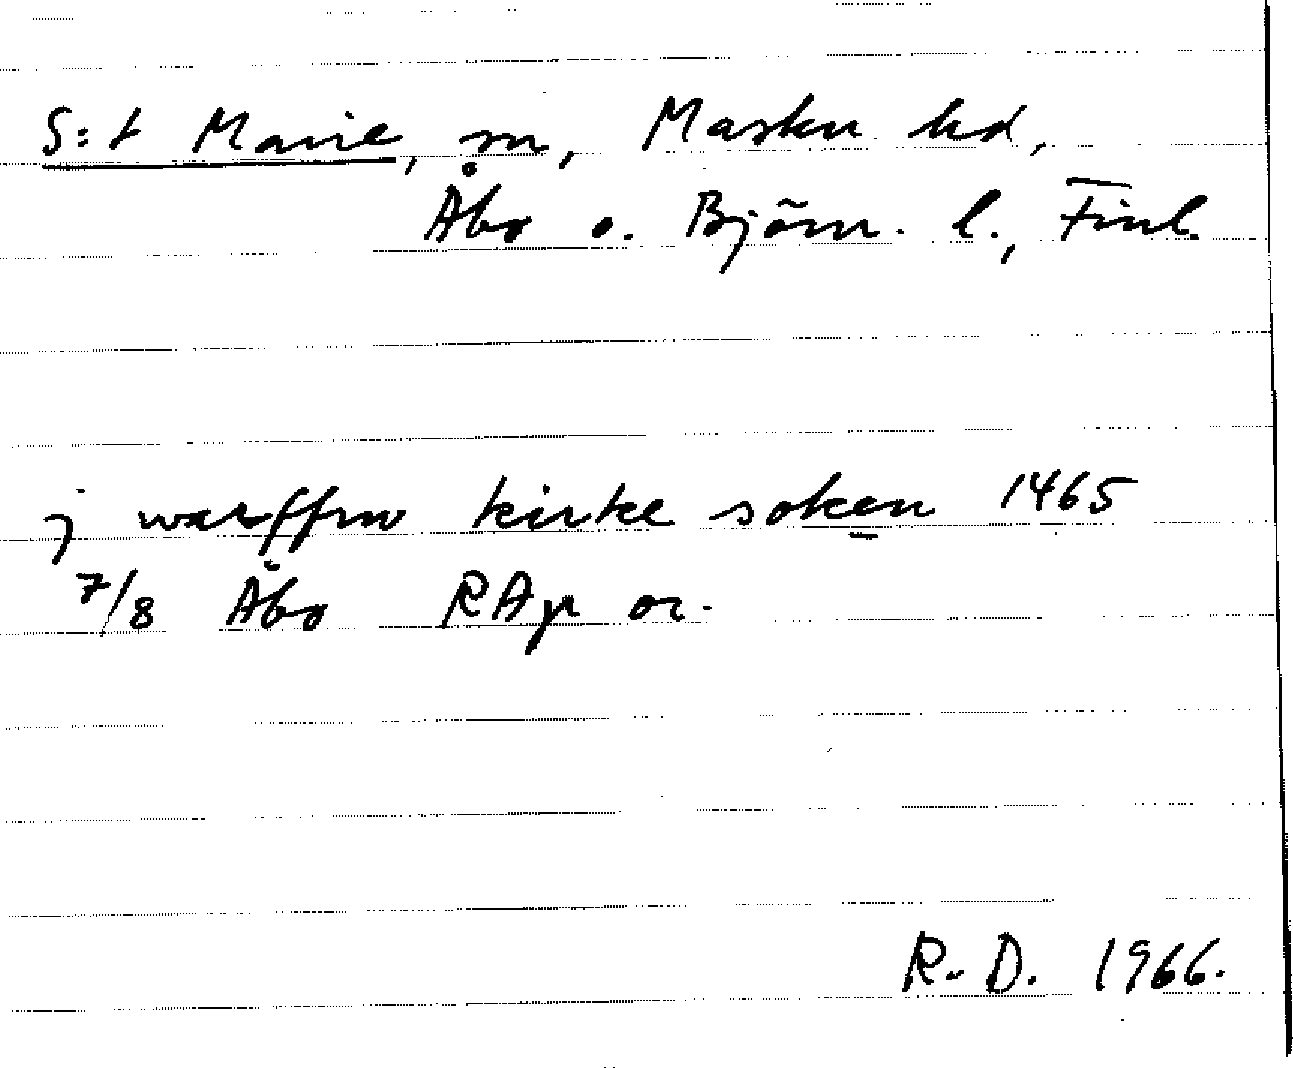 S:t Marie, sn, Masku hd,
Åbo o. Björn. l., Finl.
j warffrw kirke soken 1465
7/8 Åbo RAp or.
R. D. 1966.